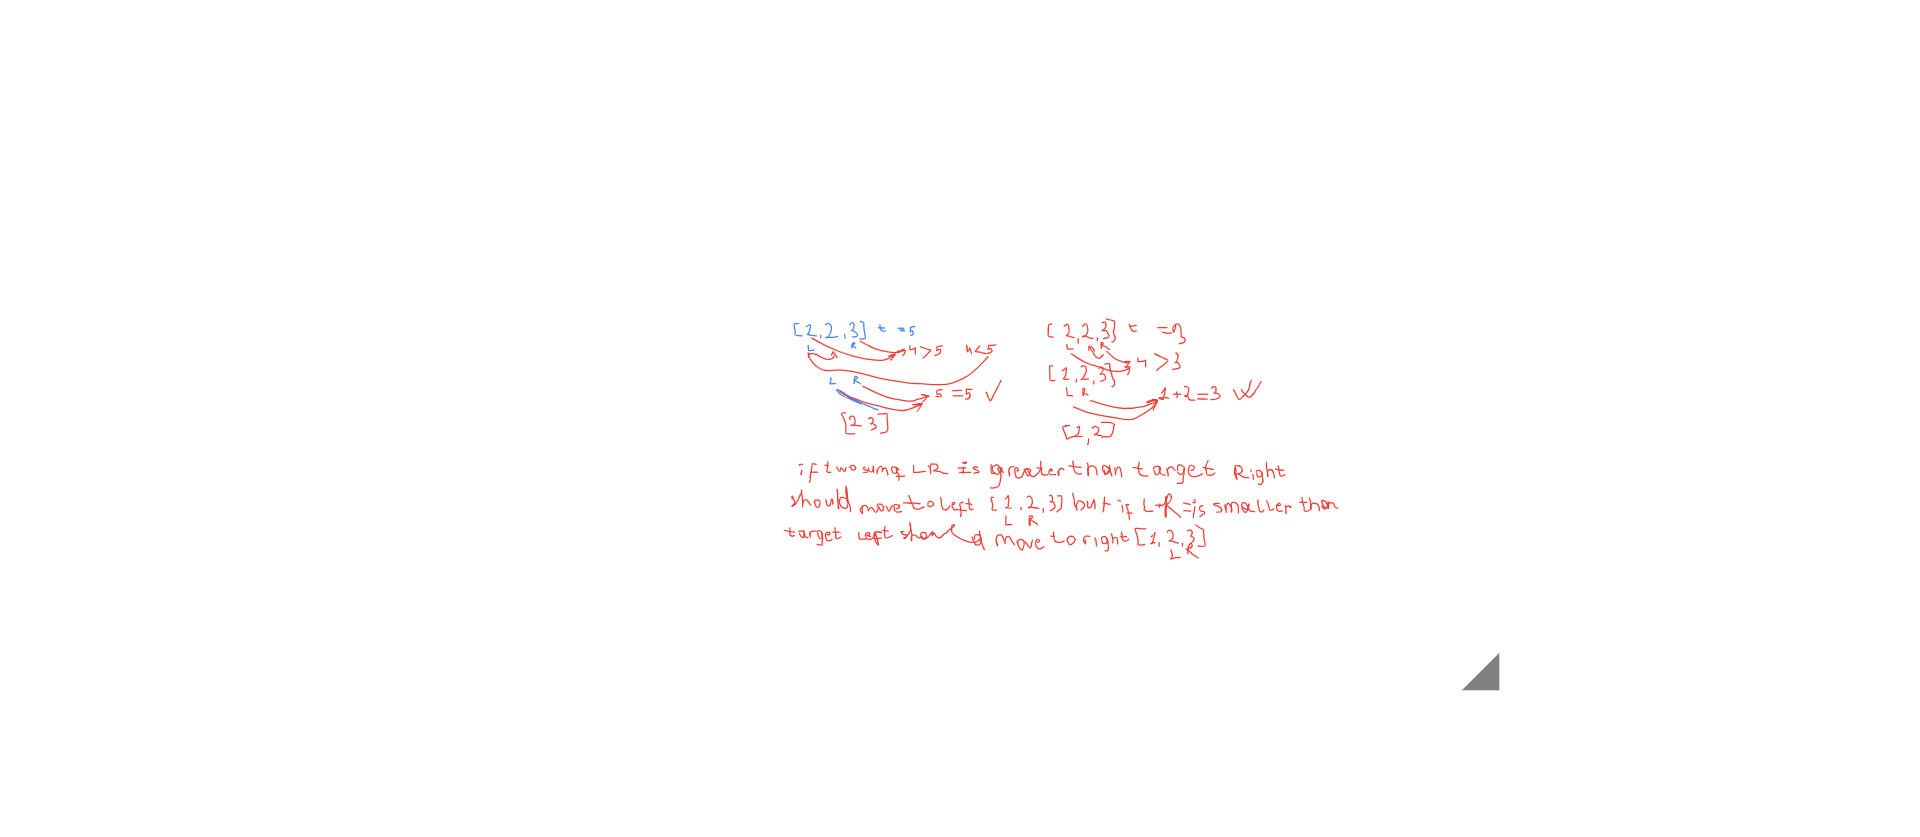 [1,2,3] t =5
L R 4>5 4<5
L R 5=5
[2 3]
[1,2,3] t =3
L R 4>3
[1,2,3]
L R 1+2=3
[1,2]
if two sum of LR is greater than target Right
should move to left [1,2,3] but if L+R=is smaller than
L R
target left should move to right [1,2,3]
L R